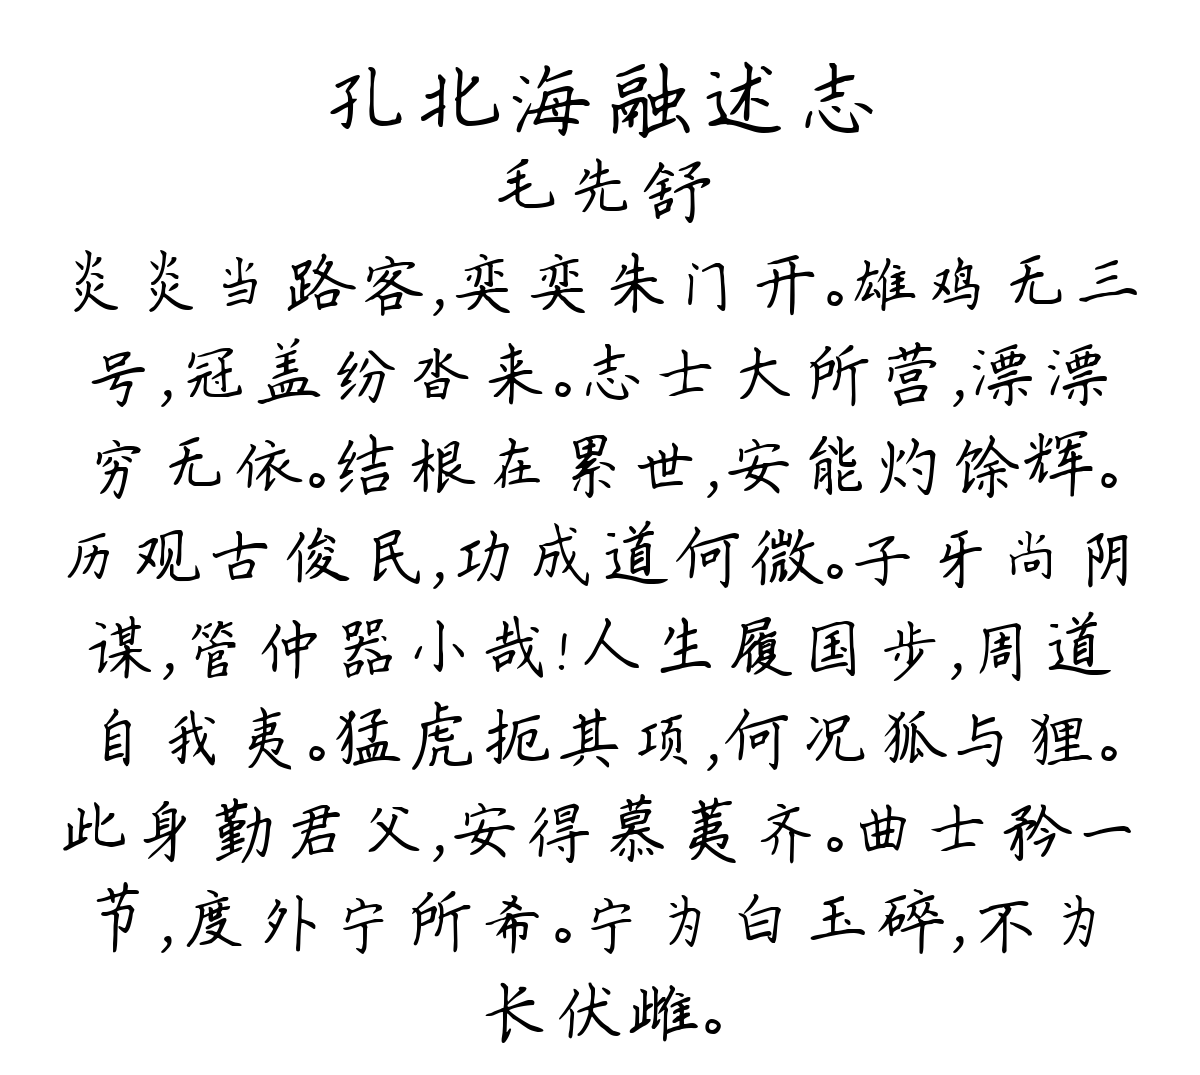 孔北海融述志
毛先舒
炎炎当路客,奕奕朱门开。雄鸡无三
号,冠盖纷沓来。志士大所营,漂漂
穷无依。结根在累世,安能灼馀辉。
历观古俊民,功成道何微。子牙尚阴
谋,管仲器小哉!人生履国步,周道
自我夷。猛虎扼其项,何况狐与狸。
此身勤君父,安得慕荑齐。曲士矜一
节,度外宁所希。宁为白玉碎,不为
长伏雌。